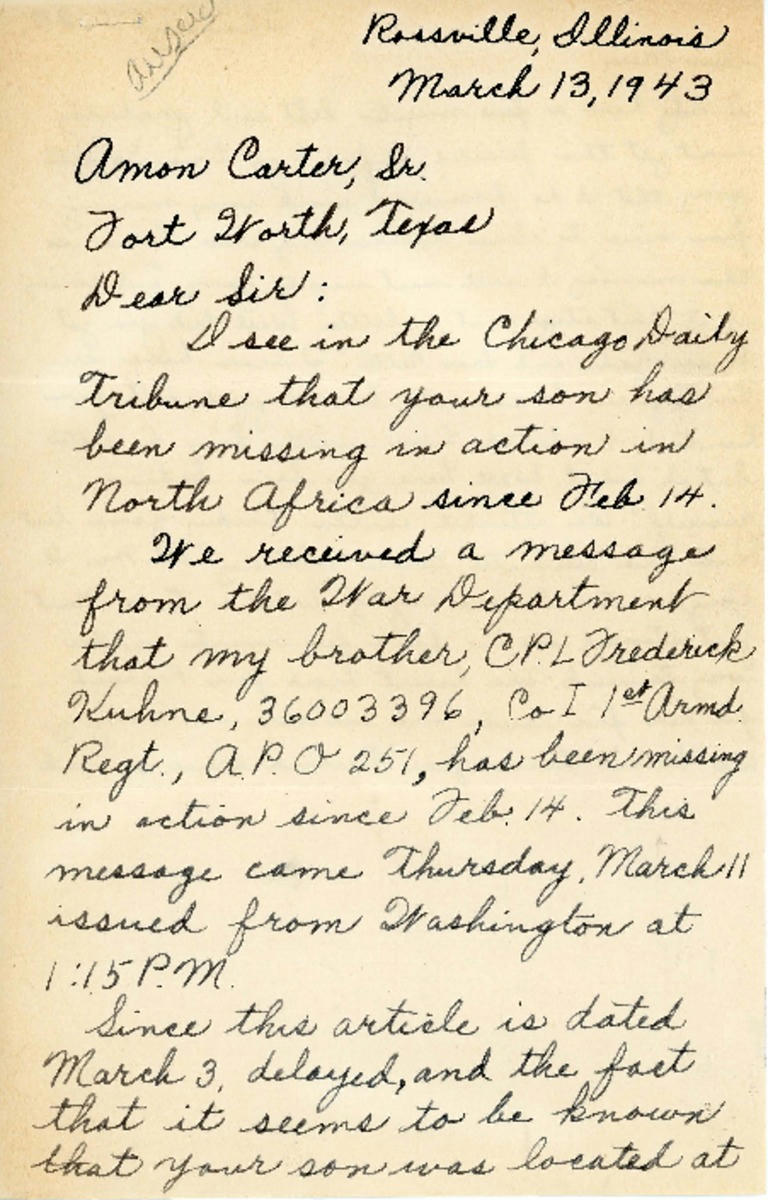 Rossville, Illinois
March 13, 1943
Amon Carter, Sr.
Fort Worth, Texas
Dear Sir:
I see in the Chicago Daily
Tribune that your son has
been missing in action in
North Africa since Feb 14.
We received a message
from the War Department
that my brother, CPL Frederick
Kuhne, 36003396, Co I 1st Armd.
Regt., A.P.O 251, has been missing
in action since Feb. 14. This
message came Thursday, March 11
issued from Washington at
1:15 P.M.
Since this article is dated
March 3, delayed, and the fact
that it seems to be known
that your son was located at